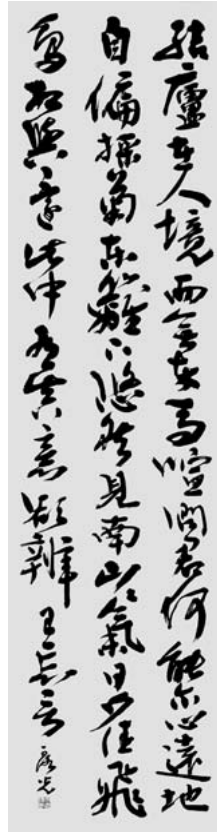 結廬在人境而無車馬喧問君何能尓心遠地
自偏採菊東籬下悠然見南山々氣日夕佳飛
鳥相與還此中有真意欲辨已忘言